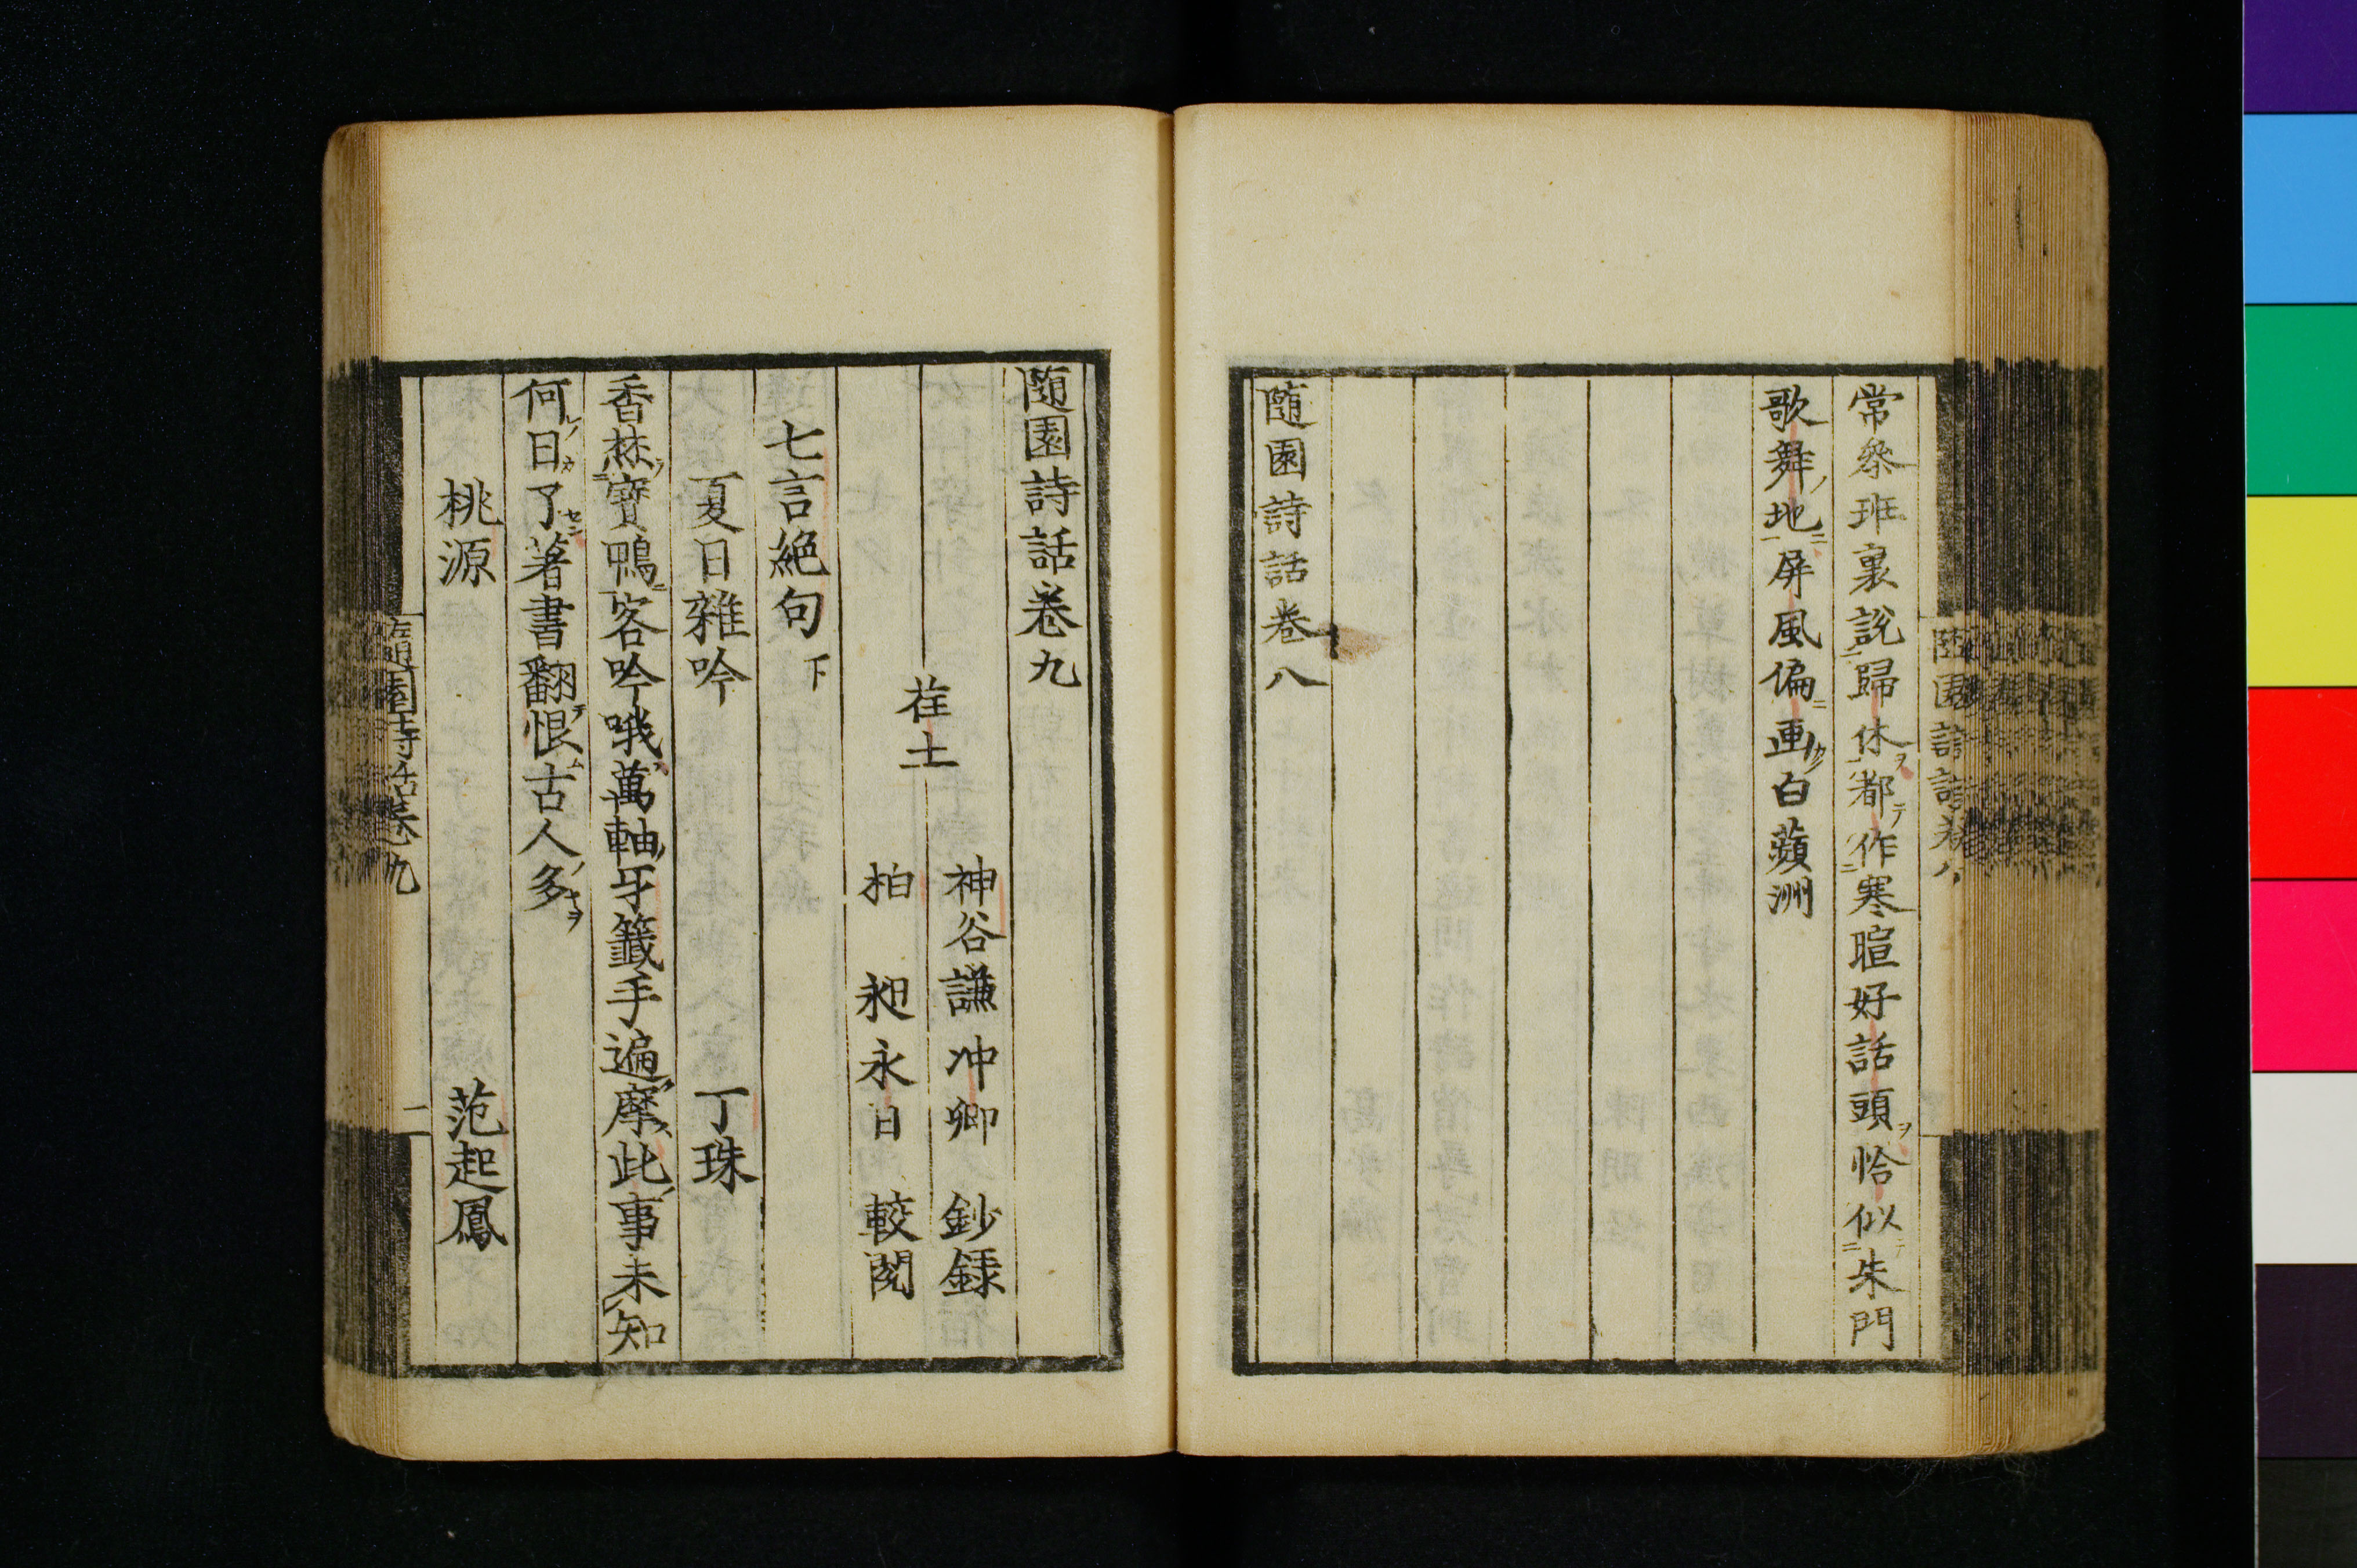 常叅班裏說歸休都作寒暄好話頭恰似朱門
歌舞地屏風偏画白蘋洲
隨園詩話卷八
隨園詩話卷九
荏土
神谷謙冲卿 鈔録
柏 昶永日 較閲
七言絶句 下
夏日雜吟 丁珠
香𤇆寶鴨客吟哦萬軸牙籤手遍摩此事未知
何日了著書翻恨古人多
桃源 范起鳳
隨園詩話卷九 二